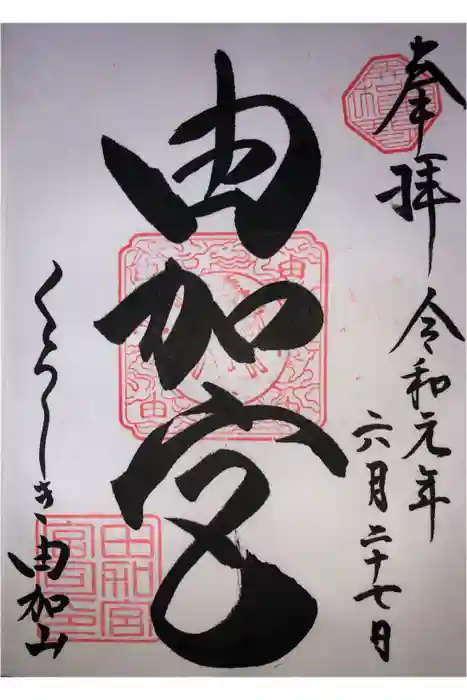 奉拝
令和元年
六月二十七日
由加宮
くらしき 由加山